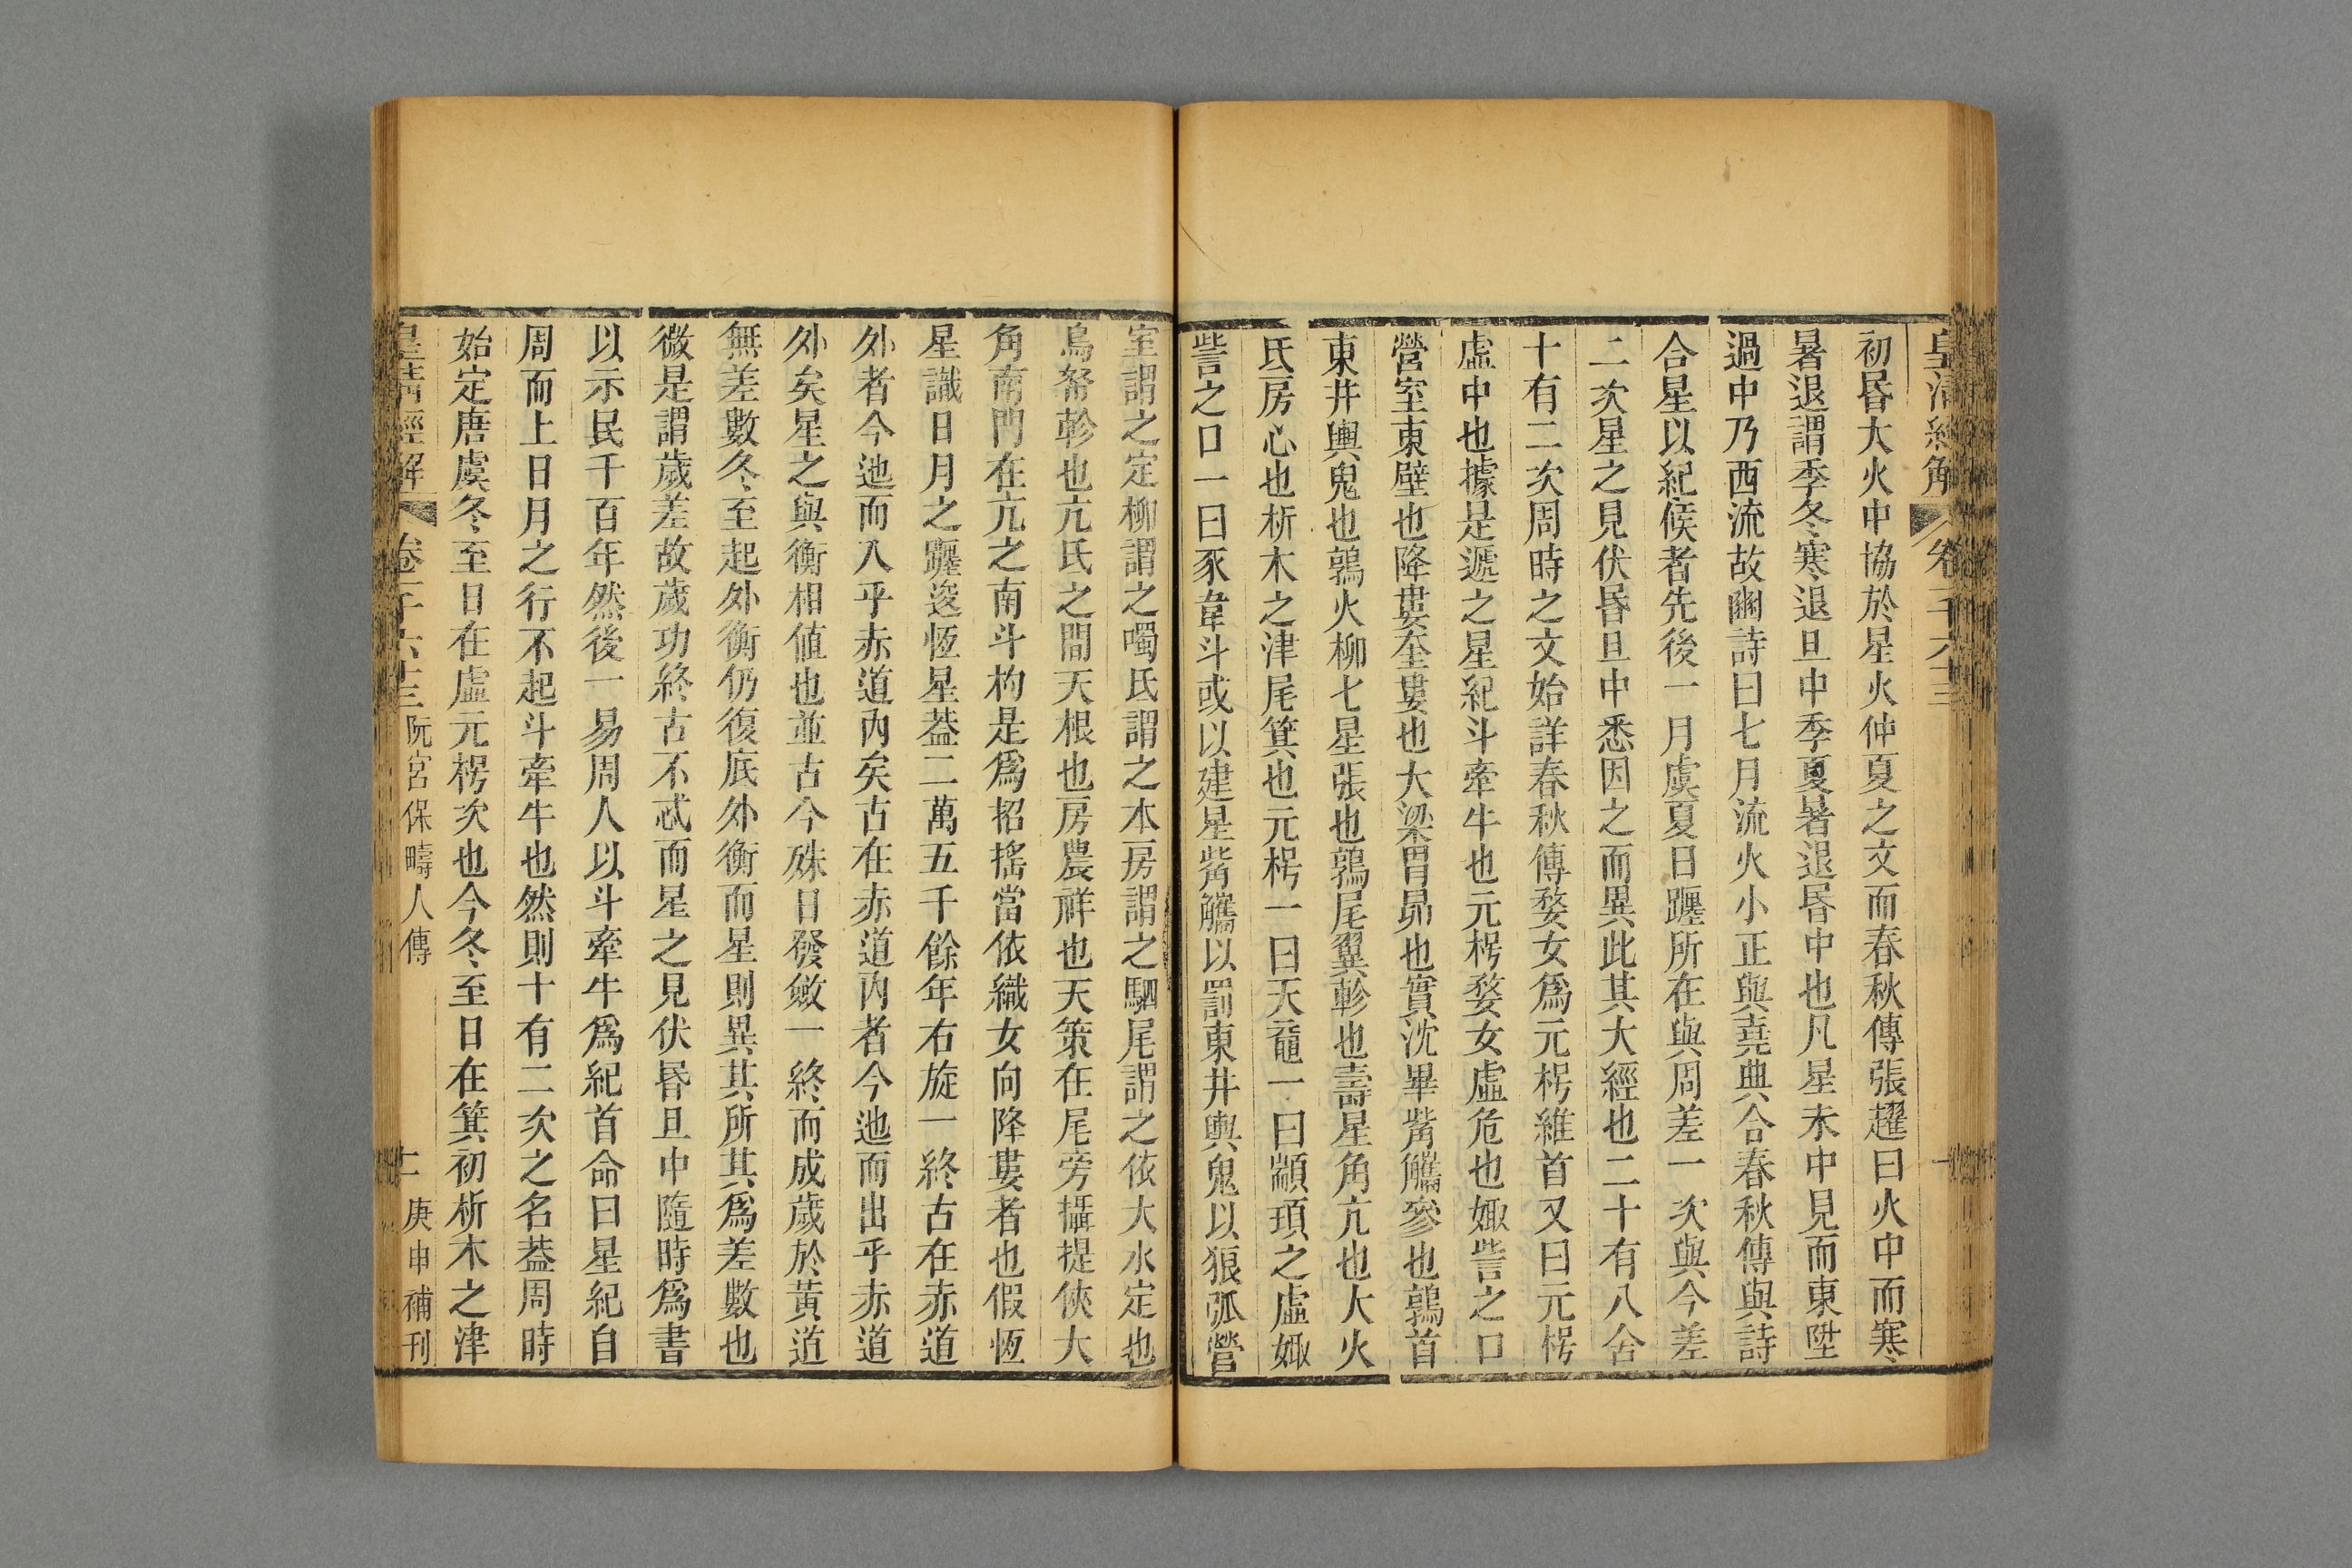 皇清經解 卷一千六十三 一
初昬大火中協於星火仲夏之文而春秋傳張趯曰火中而寒
暑退謂季冬寒退旦中季夏暑退昬中也凡星未中見而東陞
過中乃西流故豳詩曰七月流火小正與堯典合春秋傳與詩
合星以紀候者先後一月虞夏日躔所在與周差一次與今差
二次星之見伏昬旦中悉因之而異此其大經也二十有八舍
十有二次周時之文始詳春秋傳婺女爲元枵維首又曰元枵
虛中也據是遞之星紀斗牽牛也元枵婺女虛危也娵訾之口
營室東壁也降婁奎婁也大梁胃昴也實沈畢觜觿參也鶉首
東井輿鬼也鶉火柳七星張也鶉尾翼軫也壽星角亢也大火
氐房心也析木之津尾箕也元枵一曰天黿一曰顓頊之虛娵
訾之口一曰豕韋斗或以建星觜觿以罰東井輿鬼以狼弧營
室謂之定柳謂之噣氐謂之本房謂之駟尾謂之依大水定也
鳥帑軫也亢氐之間天根也房農祥也天策在尾旁攝提俠大
角南門在亢之南斗杓是爲招搖當依織女向降婁者也假恆
星識日月之躔逡恆星葢二萬五千餘年右旋一終古在赤道
外者今迆而入乎赤道內矣古在赤道內者今迆而出乎赤道
外矣星之與衡相値也並古今殊日發斂一終而成歲於黃道
無差數冬至起外衡仍復底外衡而星則異其所其爲差數也
微是謂歲差故歲功終古不忒而星之見伏昬旦中隨時爲書
以示民千百年然後一易周人以斗牽牛爲紀首命曰星紀自
周而上日月之行不起斗牽牛也然則十有二次之名葢周時
始定唐虞冬至日在虛元枵次也今冬至日在箕初析木之津
皇清經解 卷一千六十三 阮宮保疇人傳 二 庚申補刊